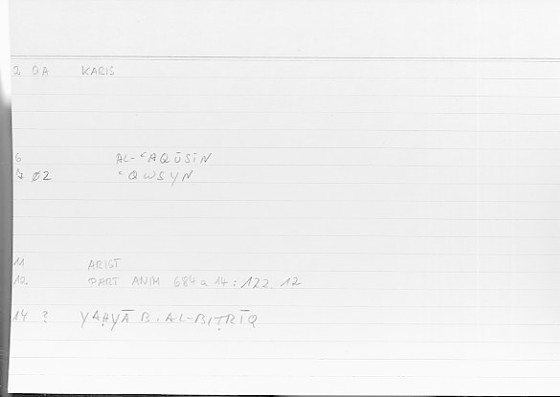 2 GA KARIS
6 AL-ʿAQŪSĪN
↳ Ø2 ʿQWSYN
11 ARIST
12 PART ANIM 684 a 14 : 122.12
14 ? YAḤYĀ B. AL-BIṬRĪQ